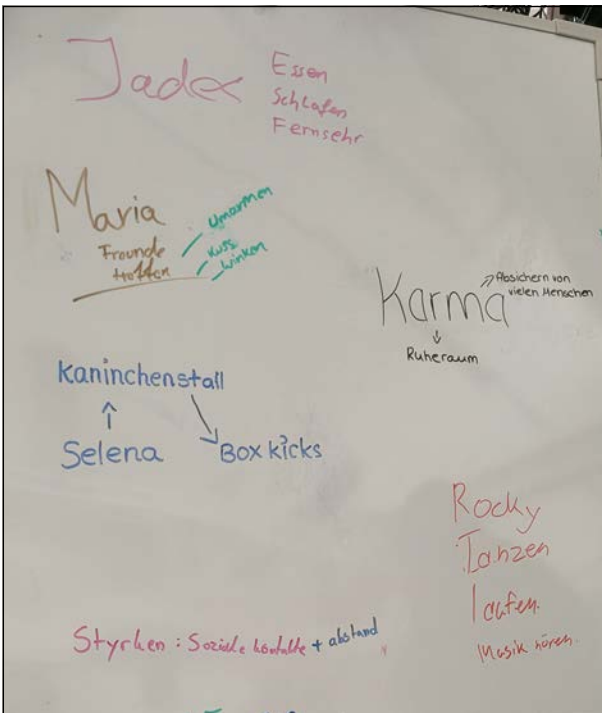 Jade
Essen
Schlafen
Fernsehr
Maria
Freunde
treffen
Umarmen
Kuss
winken
Karma
Absichern von
vielen Menschen
Ruheraum
Kaninchenstall
Selena
Box kicks
Rocky
Tanzen
laufen.
Musik hören.
Styrken : Soziale kontakte + abstand